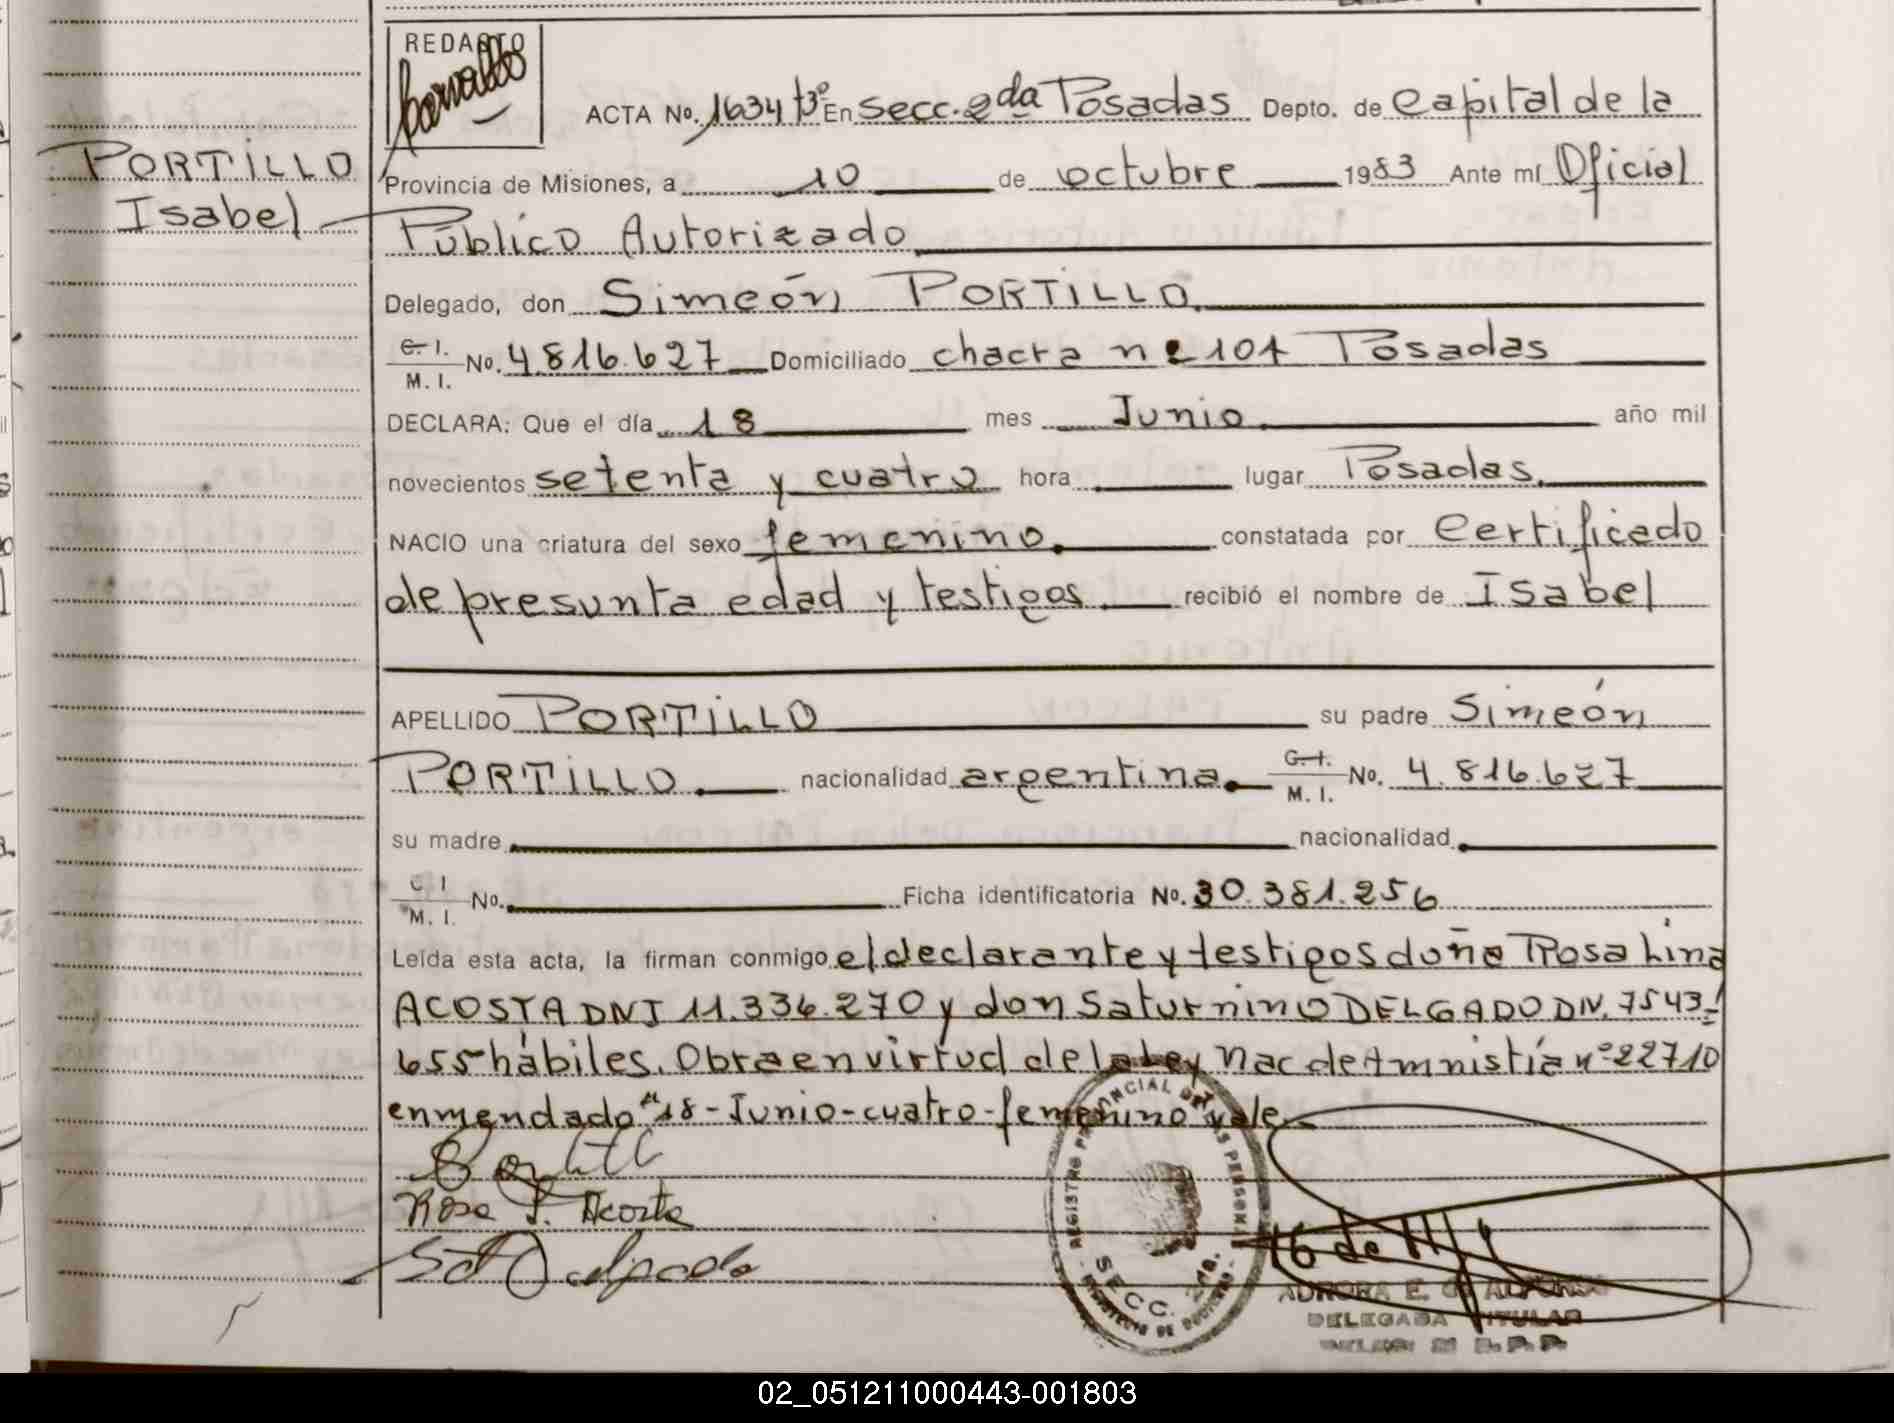 REDACTO
ACTA No. 1634 tº3 En secc. 2da Posadas Depto. de Capital de la
PORTILLO
Isabel
Provincia de Misiones, a 10 de octubre 1983 Ante mí Oficial
Público Autorizado
Delegado, don Simeón PORTILLO
C. I.
M. I. No. 4.816.627 Domiciliado chacra nº 104 Posadas
DECLARA: Que el día 18 mes Junio año mil
novecientos setenta y cuatro hora lugar Posadas
NACIO una criatura del sexo femenino. constatada por Certificado
de presunta edad y testigos recibió el nombre de Isabel
APELLIDO PORTILLO su padre Simeón
PORTILLO nacionalidad argentina. C. I.
M. I. No. 4.816.627
su madre nacionalidad
C. I.
M. I. No. Ficha identificatoria No. 30.381.256
Leída esta acta, la firman conmigo el declarante y testigos doña Rosa Lina
ACOSTA DNI 11.336.270 y don Saturnino DELGADO DNI. 7543.-
655 hábiles. Obra en virtud de la Ley Nac de Amnistía nº 22710
enmendado "18-Junio-cuatro-femenino" vale
Rosa L. Acosta
REGISTRO PROVINCIAL DE LAS PERSONAS
SECC. 2da.
AURORA E. G. ALFONSO
DELEGADA TITULAR
02_051211000443-001803